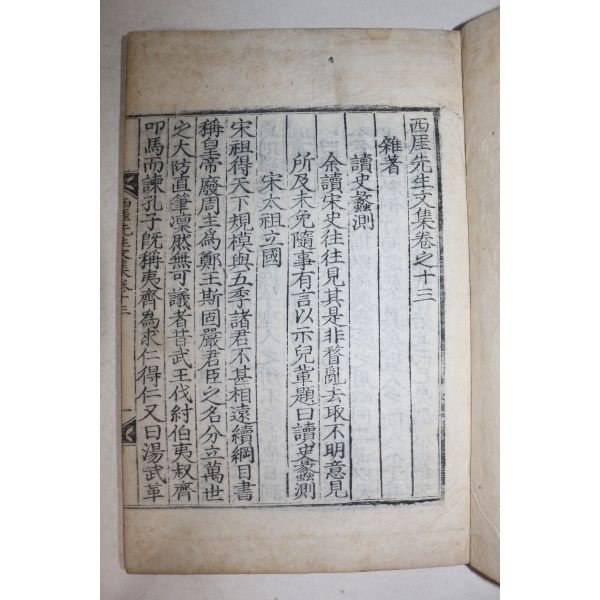 西厓先生文集卷之十三
雜著
讀史蠡測
余讀宋史往往見其是非瞀亂去取不明意見
所及未免隨事有言以示兒軰題曰讀史蠡測
宋太祖立國
宋祖得天下規模與五季諸君不甚相遠續綱目書
稱皇帝廢周主為鄭王斯固嚴君臣之名分立萬世
之大防直筆凜然無可議者昔武王伐紂伯夷叔齊
叩馬而諫孔子旣稱夷齊為求仁得仁又曰湯武革
西厓先生文集卷十三
一